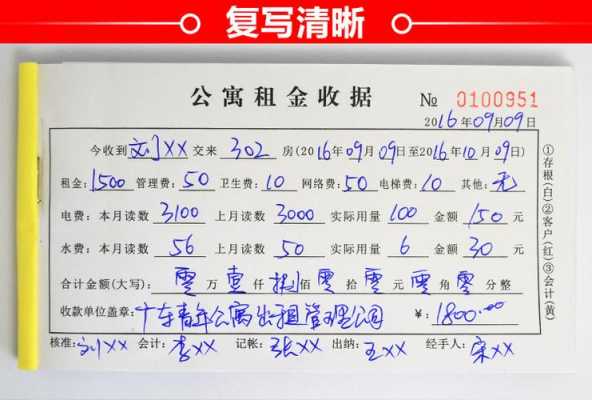 复写清晰
公寓租金收据 № 0100951
2016年09月09日
今收到刘XX交来302房(2016年09月09日至2016年10月09日)
租金:1500管理费:50卫生费:10网络费:50电梯费:10其他:无
电费:本月读数3100上月读数3000实际用量100金额150元
水费:本月读数56上月读数50实际用量6金额30元
合计金额(大写):零万壹仟捌佰零拾零元零角零分整
收款单位盖章:青年公寓出租管理公司 ¥:1800.00
核准:刘XX会计:李XX记帐:张XX出纳:王XX经手人:宋XX
①存根(白)②客户(红)③会计(黄)